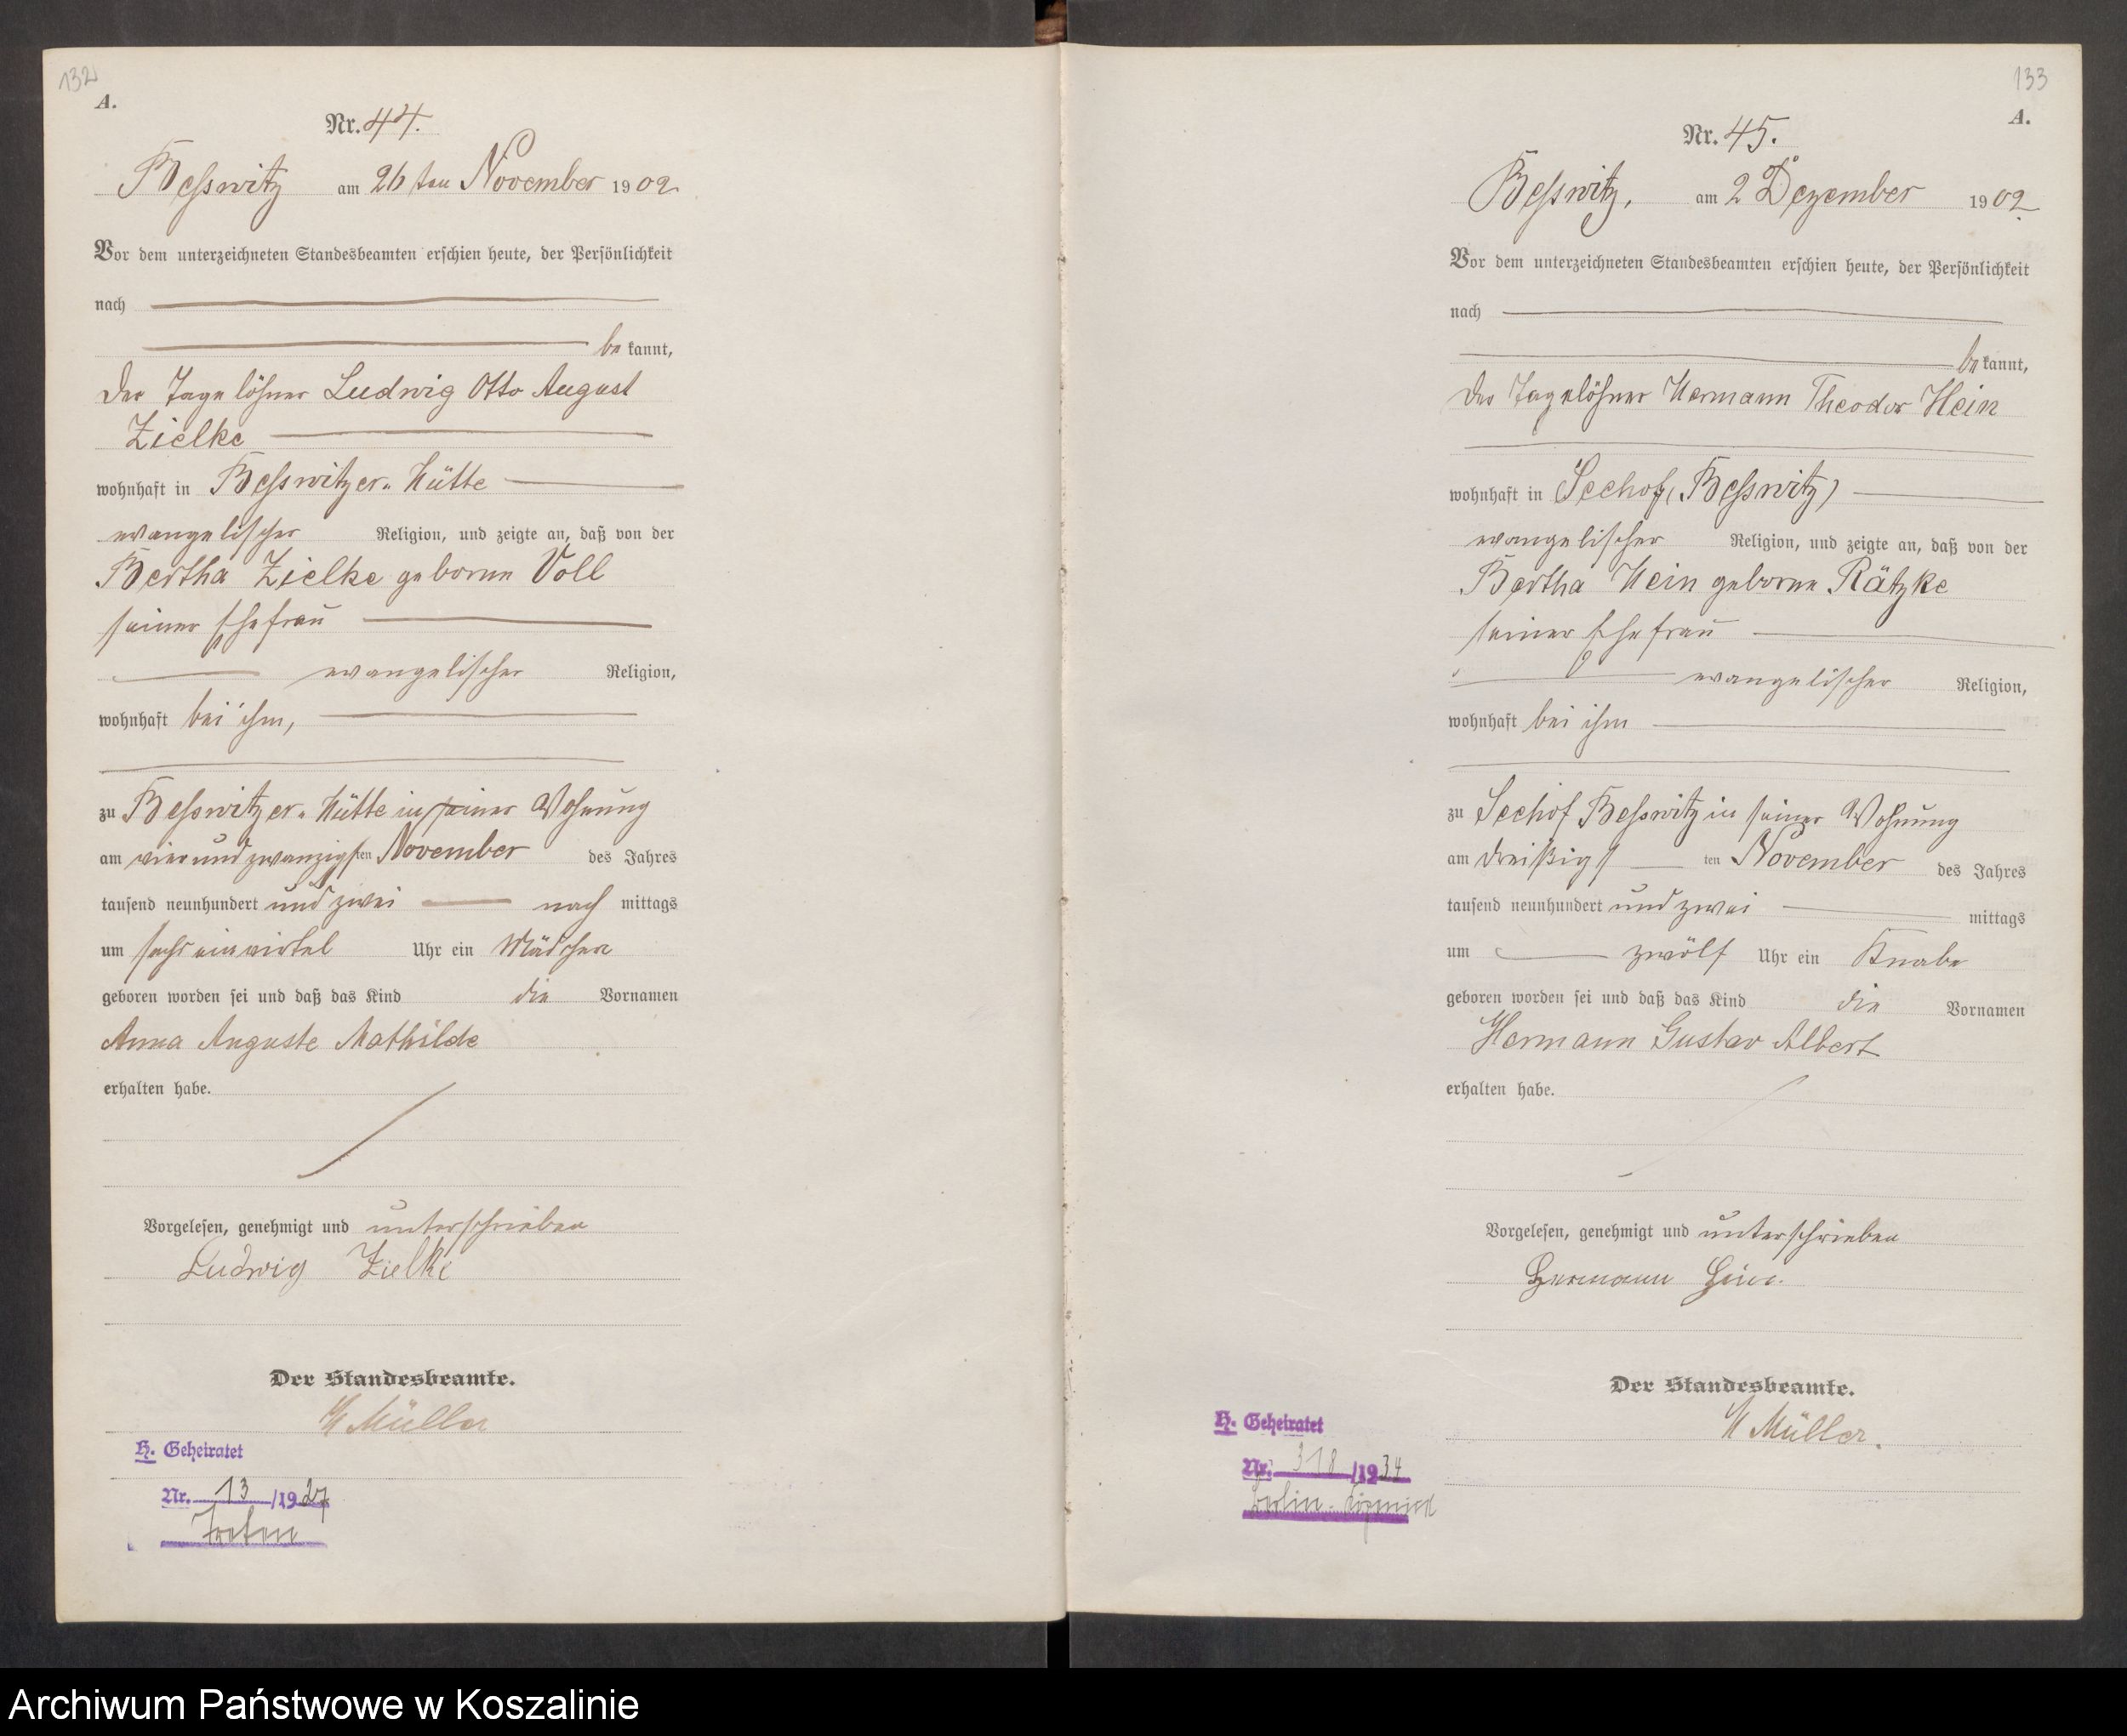 132
A.
Nr. 44.
Besswitz am 26ten November 1902
Vor dem unterzeichneten Standesbeamten erschien heute, der Persönlichkeit
nach
bekannt,
der Tagelöhner Ludwig Otto August
Zielke
wohnhaft in Besswitzer-Hütte
evangelischer Religion, und zeigte an, daß von der
Bertha Zielke geborene Voll
seiner Ehefrau
evangelischer Religion,
wohnhaft bei ihm,
zu Besswitzer-Hütte in seiner Wohnung
am vierundzwanzigsten November des Jahres
tausend neunhundert und zwei nach mittags
um sechs einviertel Uhr ein Mädchen
geboren worden sei und daß das Kind die Vornamen
Anna Auguste Mathilde
erhalten habe.
Vorgelesen, genehmigt und unterschrieben
Ludwig Zielke
Der Standesbeamte.
Müller
H. Geheiratet
Nr. 13 /1927
Treten
133
A.
Nr. 45.
Besswitz, am 2 Dezember 1902
Vor dem unterzeichneten Standesbeamten erschien heute, der Persönlichkeit
nach
bekannt,
der Tagelöhner Hermann Theodor Hein
wohnhaft in Seehof, (Besswitz)
evangelischer Religion, und zeigte an, daß von der
Bertha Hein geborene Rätzke
seiner Ehefrau
evangelischer Religion,
wohnhaft bei ihm
zu Seehof Besswitz in seiner Wohnung
am dreißigsten November des Jahres
tausend neunhundert und zwei mittags
um zwölf Uhr ein Knabe
geboren worden sei und daß das Kind die Vornamen
Hermann Gustav Albert
erhalten habe.
Vorgelesen, genehmigt und unterschrieben
Hermann Hein.
Der Standesbeamte.
Müller.
H. Geheiratet
Nr. 318 /1934
Berlin-Köpenick
Archiwum Państwowe w Koszalinie